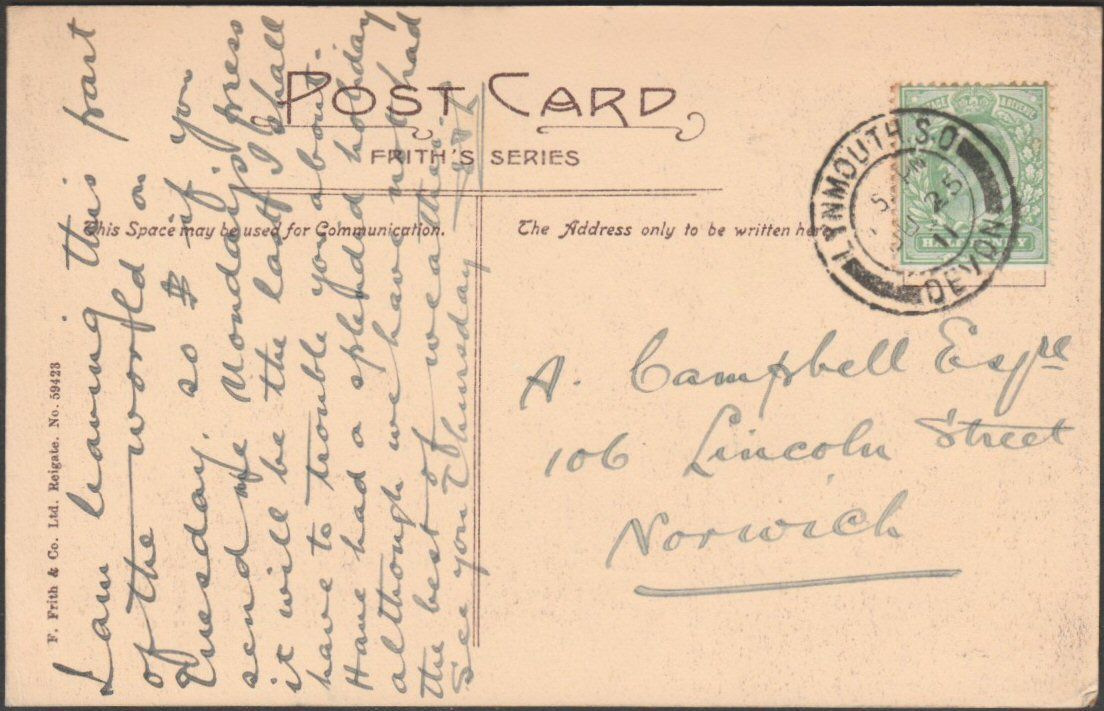 POST CARD
FRITH'S SERIES
This Space may be used for Communication.
The Address only to be written here
F. Frith & Co. Ltd. Reigate. No. 59423
I am leaving this part
of the world on
Tuesday. so if you
send me Monday's press
it will be the last I shall
have to trouble you about.
Have had a splended holiday
although we have not had
the best of weather
See you Thursday
LYNMOUTH. S.O
DEVON
25
11
HALFPENNY
A. Campbell Esqre
106 Lincoln Street
Norwich